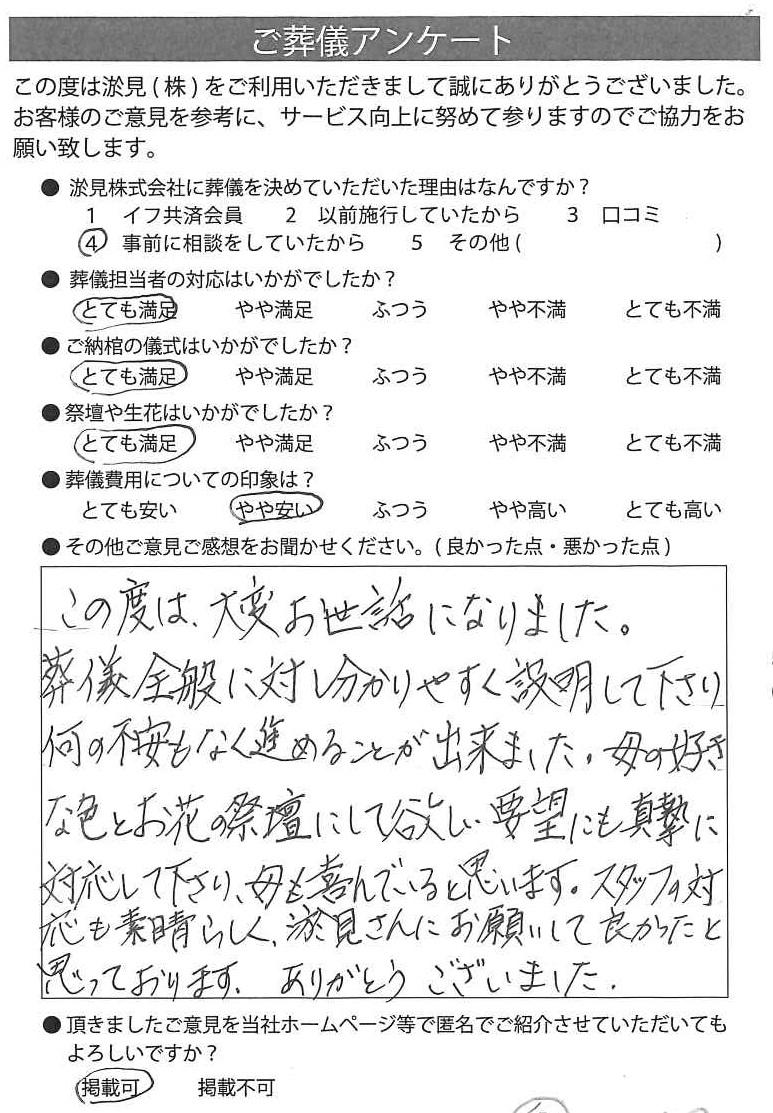 ご葬儀アンケート
この度は淤見(株)をご利用いただきまして誠にありがとうございました。
お客様のご意見を参考に、サービス向上に努めて参りますのでご協力をお
願い致します。
● 淤見株式会社に葬儀を決めていただいた理由はなんですか？
1 イフ共済会員 2 以前施行していたから 3 口コミ
4 事前に相談をしていたから 5 その他( )
● 葬儀担当者の対応はいかがでしたか？
とても満足 やや満足 ふつう やや不満 とても不満
● ご納棺の儀式はいかがでしたか？
とても満足 やや満足 ふつう やや不満 とても不満
● 祭壇や生花はいかがでしたか？
とても満足 やや満足 ふつう やや不満 とても不満
● 葬儀費用についての印象は？
とても安い やや安い ふつう やや高い とても高い
● その他ご意見ご感想をお聞かせください。(良かった点・悪かった点)
この度は、大変お世話になりました。
葬儀全般に対し分かりやすく説明して下さり
何の不安もなく進めることが出来ました。母の好き
な色とお花の祭壇にして欲しい要望にも真摯に
対応して下さり、母も喜んでいると思います。スタッフの対
応も素晴らしく、淤見さんにお願いして良かったと
思っております。ありがとうございました。
● 頂きましたご意見を当社ホームページ等で匿名でご紹介させていただいても
よろしいですか？
掲載可 掲載不可